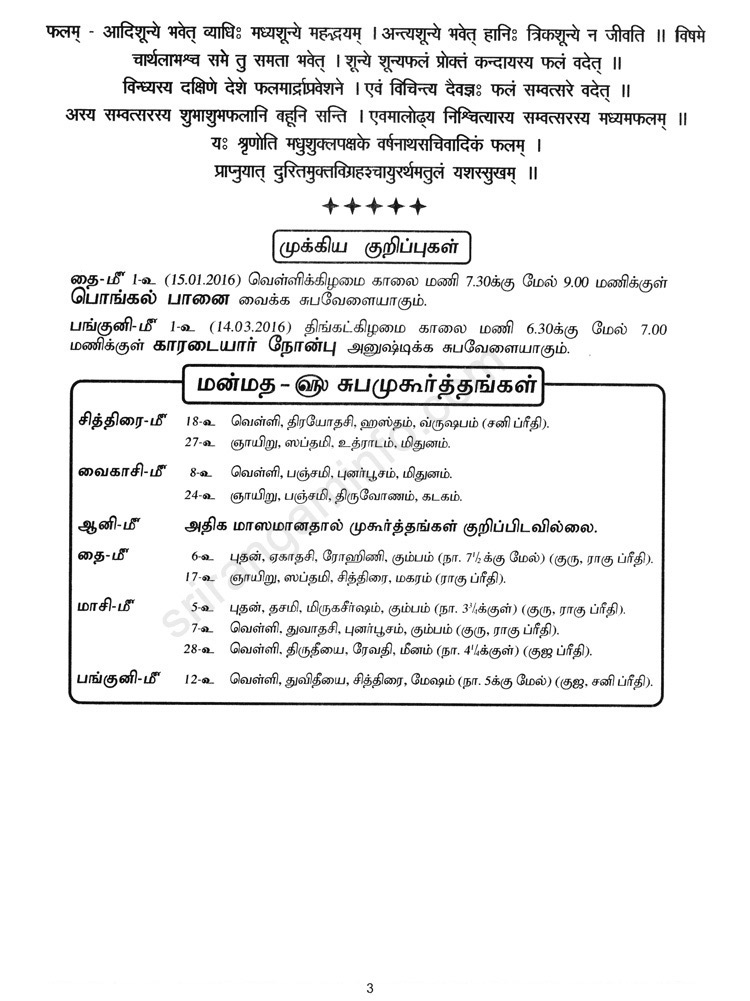 फलम् - आदिशून्ये भवेत् व्याधिः मध्यशून्ये महद्भयम् । अन्त्यशून्ये भवेत् हानिः त्रिकशून्ये न जीवति ॥ विषमे
चार्थलाभश्च समे तु समता भवेत् । शून्ये शून्यफलं प्रोक्तं कन्दायस्य फलं वदेत् ॥
विन्ध्यस्य दक्षिणे देशे फलमार्द्राप्रवेशने । एवं विचिन्त्य दैवज्ञः फलं सम्वत्सरे वदेत् ॥
अस्य सम्वत्सरस्य शुभाशुभफलानि वहूनि सन्ति । एवमालोढ्य निश्चित्यास्य सम्वत्सरस्य मध्यमफलम् ॥
यः श्रृणोति मधुशुक्लपक्षके वर्षनाथसचिवादिकं फलम् ।
प्राप्नुयात् दुरितमुक्तविग्रहश्चायुरर्थमतुलं यशस्सुखम् ॥
முக்கிய குறிப்புகள்
தை-௴ 1-௳ (15.01.2016) வெள்ளிக்கிழமை காலை மணி 7.30க்கு மேல் 9.00 மணிக்குள்
பொங்கல் பானை வைக்க சுபவேளையாகும்.
பங்குனி-௴ 1-௳ (14.03.2016) திங்கட்கிழமை காலை மணி 6.30க்கு மேல் 7.00
மணிக்குள் காரடையார் நோன்பு அனுஷ்டிக்க சுபவேளையாகும்.
மன்மத - ௵ சுபமுகூர்த்தங்கள்
சித்திரை-௴ 18-௳ வெள்ளி, திரயோதசி, ஹஸ்தம், வ்ருஷபம் (சனி ப்ரீதி).
27-௳ ஞாயிறு, ஸப்தமி, உத்ராடம், மிதுனம்.
வைகாசி-௴ 8-௳ வெள்ளி, பஞ்சமி, புனர்பூசம், மிதுனம்.
24-௳ ஞாயிறு, பஞ்சமி, திருவோணம், கடகம்.
ஆனி-௴ அதிக மாஸமானதால் முகூர்த்தங்கள் குறிப்பிடவில்லை.
தை-௴ 6-௳ புதன், ஏகாதசி, ரோஹிணி, கும்பம் (நா. 7½க்கு மேல்) (குரு, ராகு ப்ரீதி).
17-௳ ஞாயிறு, ஸப்தமி, சித்திரை, மகரம் (ராகு ப்ரீதி).
மாசி-௴ 5-௳ புதன், தசமி, மிருகசீர்ஷம், கும்பம் (நா. 3¾க்குள்) (குரு, ராகு ப்ரீதி).
7-௳ வெள்ளி, துவாதசி, புனர்பூசம், கும்பம் (குரு, ராகு ப்ரீதி).
28-௳ வெள்ளி, திருதீயை, ரேவதி, மீனம் (நா. 4¼க்குள்) (குஜ ப்ரீதி).
பங்குனி-௴ 12-௳ வெள்ளி, துவிதீயை, சித்திரை, மேஷம் (நா. 5க்கு மேல்) (குஜ, சனி ப்ரீதி).
srirangaminfo.com
3